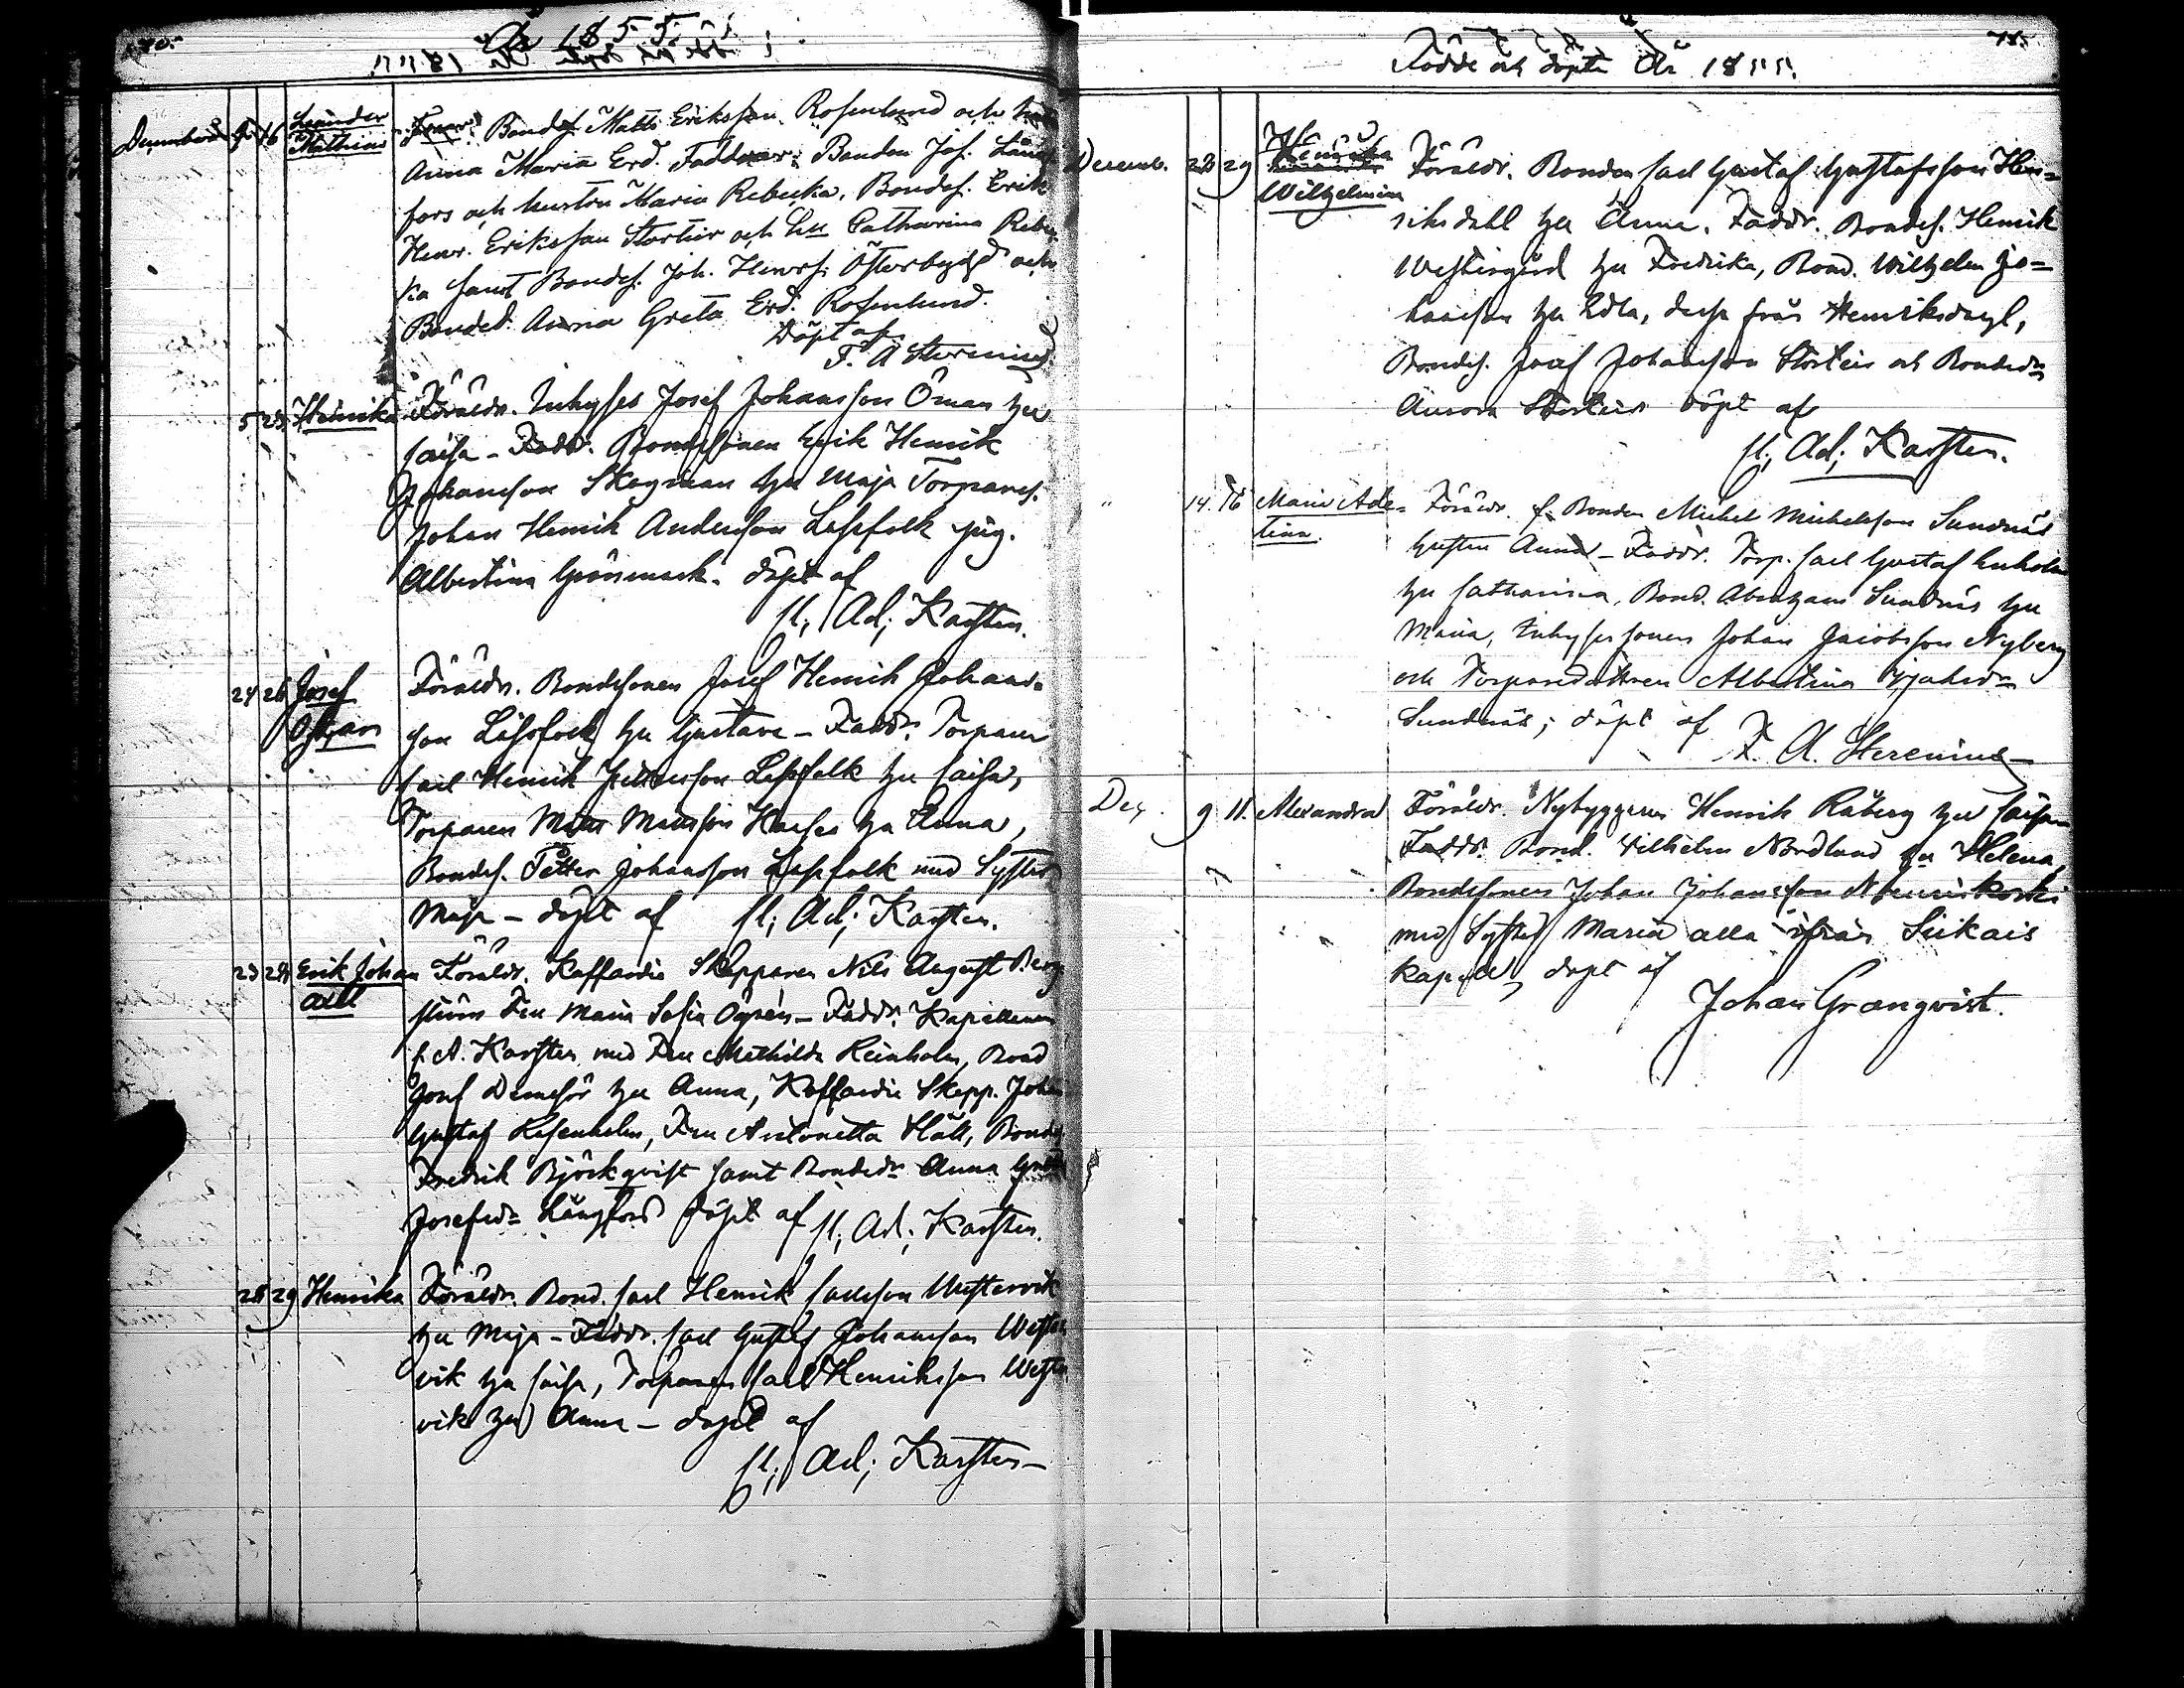 År 1855.
December 9. 16 Leander Mathias Föräldr. Bondes. Matts Eriksson Rosenlund och
Anna Maria Erd. Faddrar: Bonden Jos. Lång
fors och hustru Maria Rebecka, Bondes. Erik
Henr. Eriksson Störtivr och Catharina Rebec
ka samt Bondes. Joh. Henrs. Österbygd och
Bonded. Anna Greta Erd. Rosenlund.
Döpt af
F. A. Herenius
5 25 Henrika Föräldr. Inhyses Josef Johansson Öman hu
Caisa - Faddr. Bondesonen Erik Henrik
Johansson Skogman hu Maja Torpares.
Johan Henrik Andersson Lassfolk pig.
Albertina Grönmark. döpt af
C. Ad. Karsten.
24 26 Josef Oskar Föräldr. Bondesonen Josef Henrik Johans-
son Lassfolk hu Gustava - Faddr. Torparen
Carl Henrik Pettersson Lassfolk hu Caisa,
Torparen Matts Mattsson hu Anna,
Bondes. Petter Johansson Lassfolk med Syster
Maja - döpt af C. Ad. Karsten.
23 28 Erik Johan Axel Föräldr. Kofferdie Skepparen Nils August Berg
ström Fru Maria Sofia Ögrén - Faddr. Kapellanen
C. A. Karsten med Fru Mathilda Reinholm, Bond
Josef hu Anna, Kofferdie Skepp. Johan
Gustaf Rosenholm, Fru Antonetta Häll, Bondes
Fredrik Björkqvist samt Bondedr Anna Greta
Josefsdr Långfors döpt af C. Ad. Karsten.
28 29 Henrika Föräldr. Bond. Carl Henrik Carlsson Westervik
hu Maja - Faddr. Carl Gustaf Johansson Wester
vik hu Caisa, Torparen Carl Henriksson Wester
vik hu Anna - döpt af
C. Ad. Karsten
785.
Födde och döpte År 1855.
Decemb. 28 29 Henrika Wilhelmina Föräldr. Bonden Carl Gustaf Gustafsson Hen-
riksdahl hu Anna. Faddr. Bondes. Henrik
Westergård hu Fredrika, Bond. Wilhelm Jo-
hansson hu Edla, dessa från Henriksdahl,
Bondes. Josef Johansson Störtivr och Bondedr
Aurora Störtivr döpt af
C. Ad. Karsten.
" 14. 16 Maria Adel- tina. Föräldr. f. Bonden Michel Michelsson Sundnäs
hustru Anna - Faddr. Torp. Carl Gustaf
hu Catharina, Bond. Abraham Sundnäs hu
Maria, Inhysessonen Johan Jacobsson Nyberg
och Torparedottren Albertina
Sundnäs; döpt af
F. A. Herenius
Dec. 9 11. Alexandra Föräldr. Nybyggaren Henrik Råberg hu Caisa
Faddr. Bond. Vilhelm Nordlund hu Helena,
Bondesonen Johan Johansson
med Syster Maria alla ifrån Siikais
kapell, döpt af
Johan Granqvist.